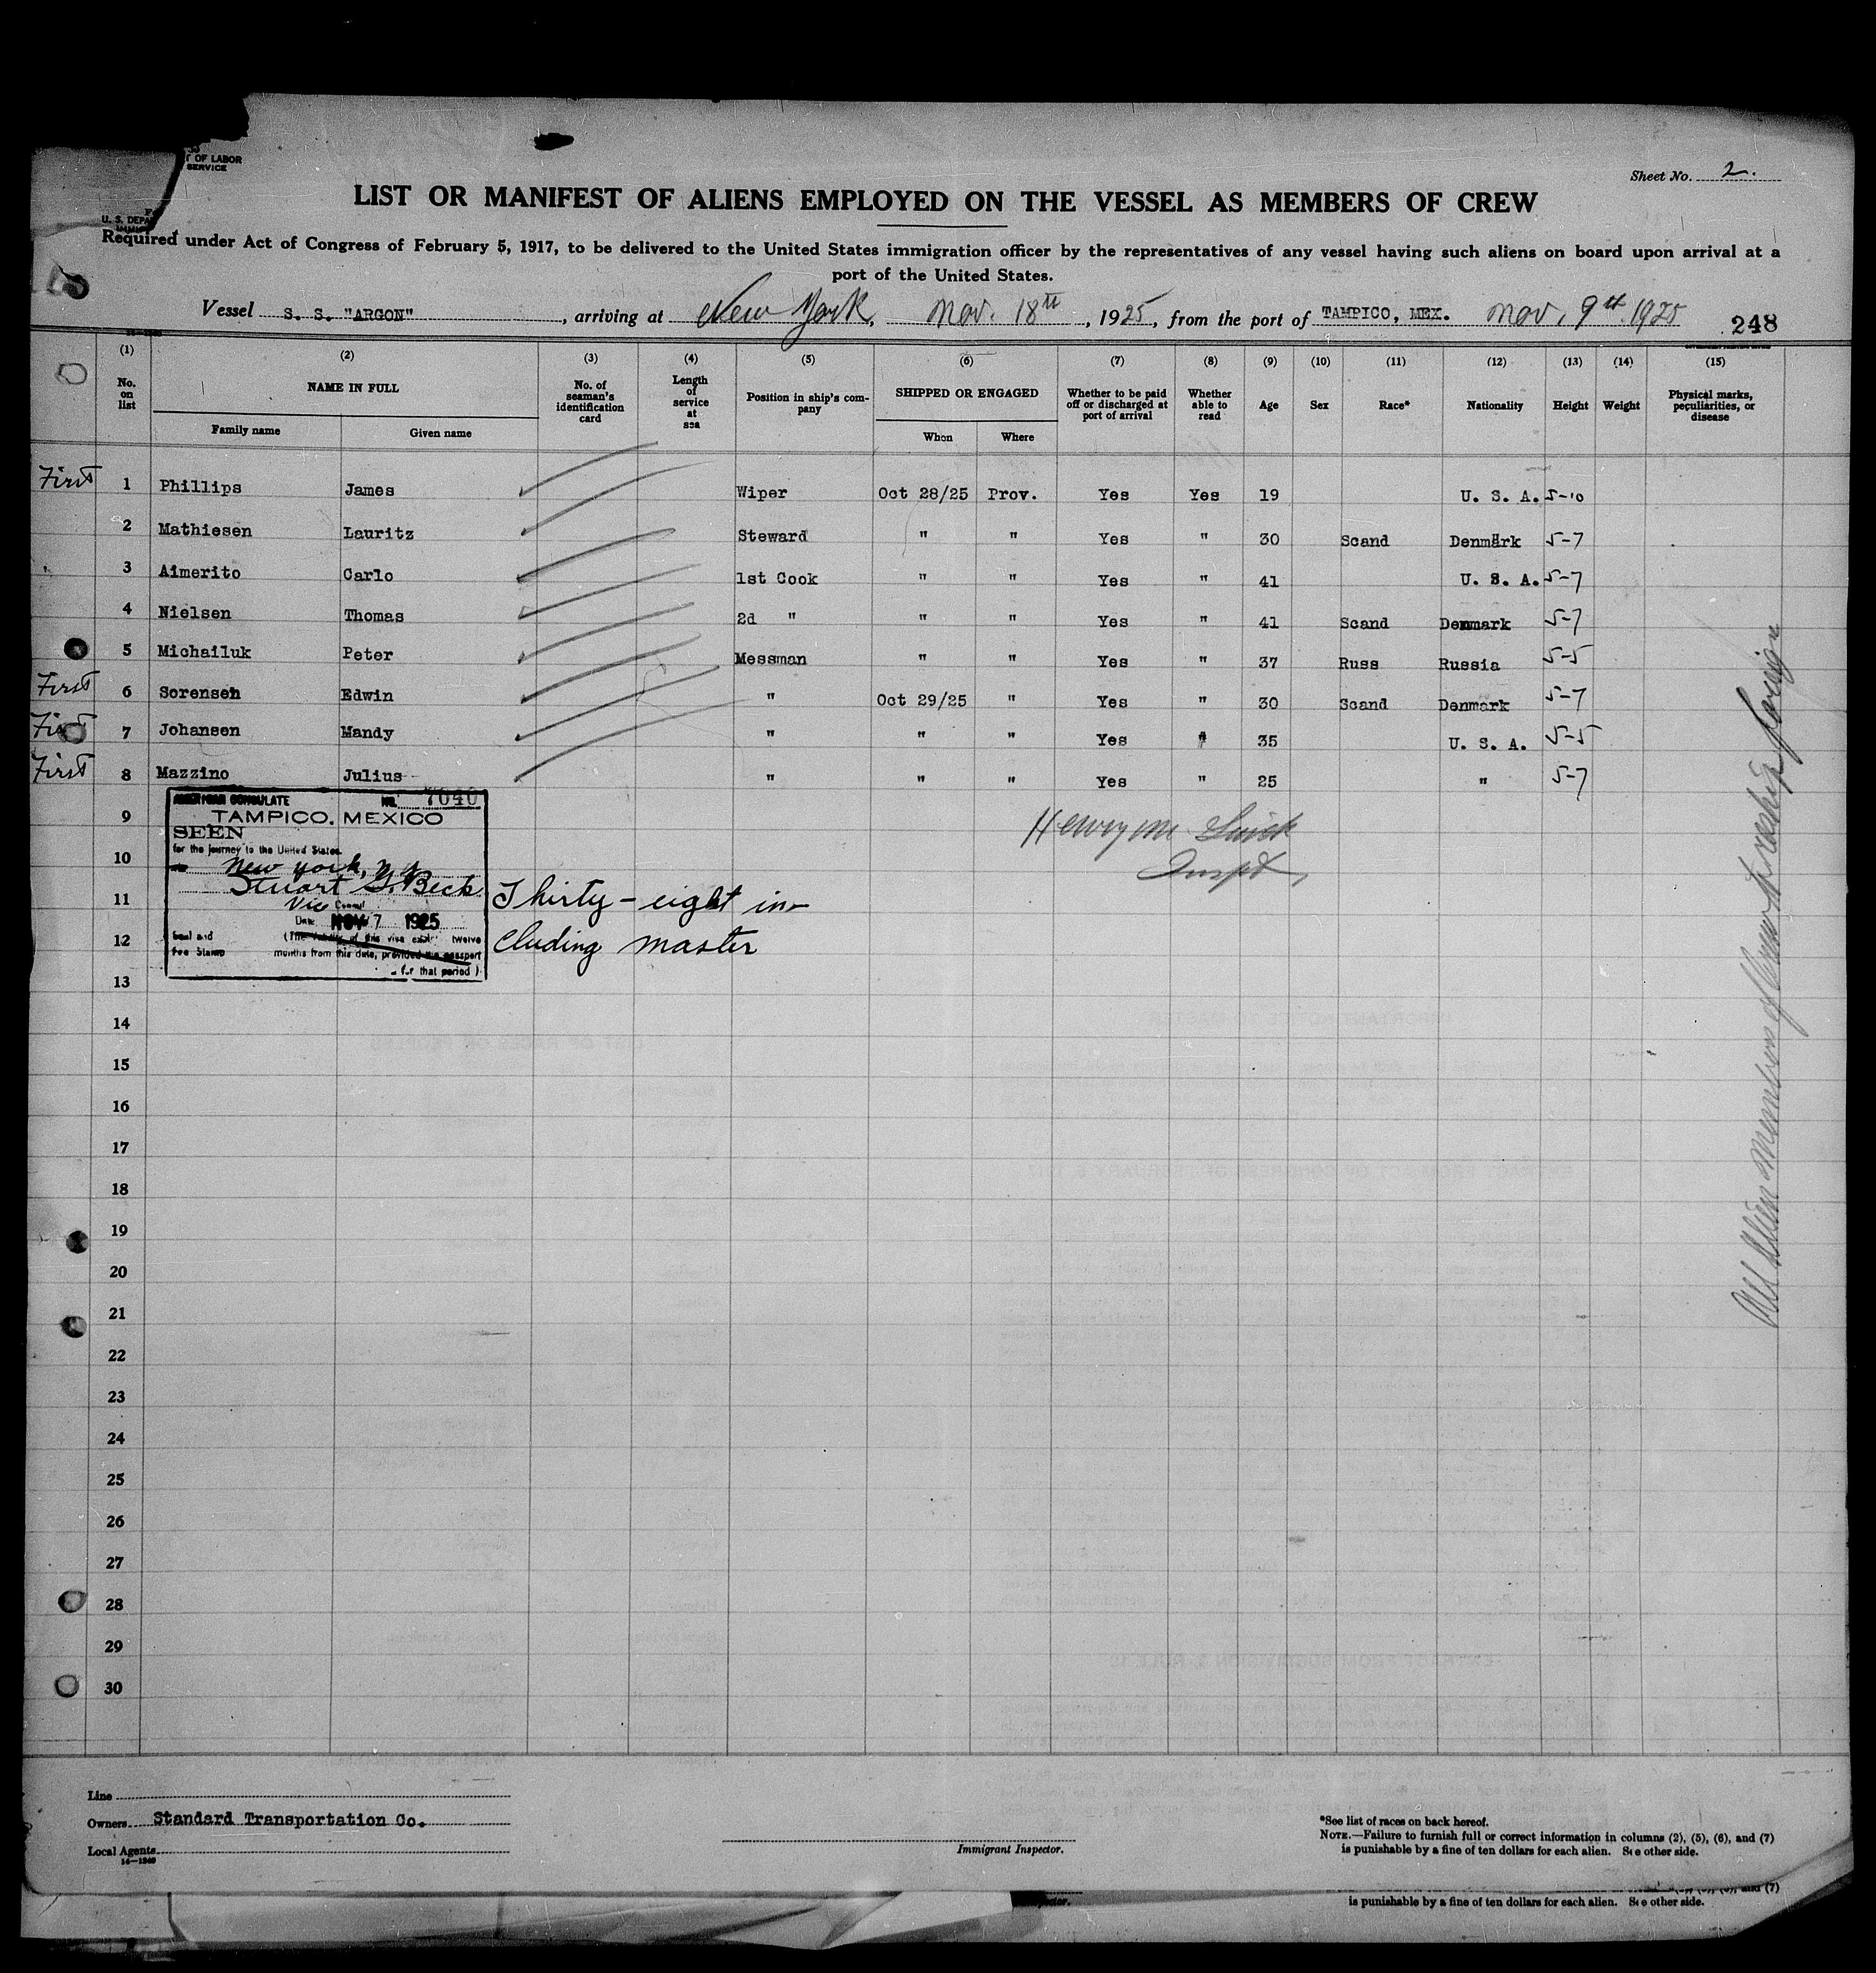 T OF LABOR
SERVICE
U. S. DEPA
Sheet No. 2.
LIST OR MANIFEST OF ALIENS EMPLOYED ON THE VESSEL AS MEMBERS OF CREW
Required under Act of Congress of February 5, 1917, to be delivered to the United States immigration officer by the representatives of any vessel having such aliens on board upon arrival at a
port of the United States.
Vessel S. S. "ARGON", arriving at New York, Nov. 18th, 1925, from the port of TAMPICO, MEX. Nov. 9th 1925 248
(1) (2) (3) (4) (5) (6) (7) (8) (9) (10) (11) (12) (13) (14) (15)
No. on list NAME IN FULL No. of seaman's identification card Length of service at sea Position in ship's company SHIPPED OR ENGAGED Whether to be paid off or discharged at port of arrival Whether able to read Age Sex Race* Nationality Height Weight Physical marks, peculiarities, or disease
Family name Given name When Where
First 1 Phillips James Wiper Oct 28/25 Prov. Yes Yes 19 U. S. A. 5-10
2 Mathiesen Lauritz Steward " " Yes " 30 Scand Denmark 5-7
3 Aimerito Carlo 1st Cook " " Yes " 41 U. S. A. 5-7
4 Nielsen Thomas 2d " " " Yes " 41 Scand Denmark 5-7
5 Michailuk Peter Messman " " Yes " 37 Russ Russia 5-5
First 6 Sorensen Edwin " Oct 29/25 " Yes " 30 Scand Denmark 5-7
First 7 Johansen Mandy " " " Yes " 35 U. S. A. 5-5
First 8 Mazzino Julius " " " Yes " 25 " 5-7
9
10
11
12
13
14
15
16
17
18
19
20
21
22
23
24
25
26
27
28
29
30
AMERICAN CONSULATE No. 7040
TAMPICO, MEXICO
SEEN
for the journey to the United States.
New York, N.Y.
Stuart G. Beck
Vice Consul
Date NOV 7 1925
Seal and (The validity of this visa twelve
Fee Stamp months from this date, provided the passport
for that period)
Thirty-eight in-
cluding master
Henry M
Inspt,
All Alien Members of Crew
foreign
Line
Owners Standard Transportation Co.
Local Agents
14—1240
Immigrant Inspector.
*See list of races on back hereof.
NOTE.—Failure to furnish full or correct information in columns (2), (5), (6), and (7)
is punishable by a fine of ten dollars for each alien. See other side.
and (7)
is punishable by a fine of ten dollars for each alien. See other side.